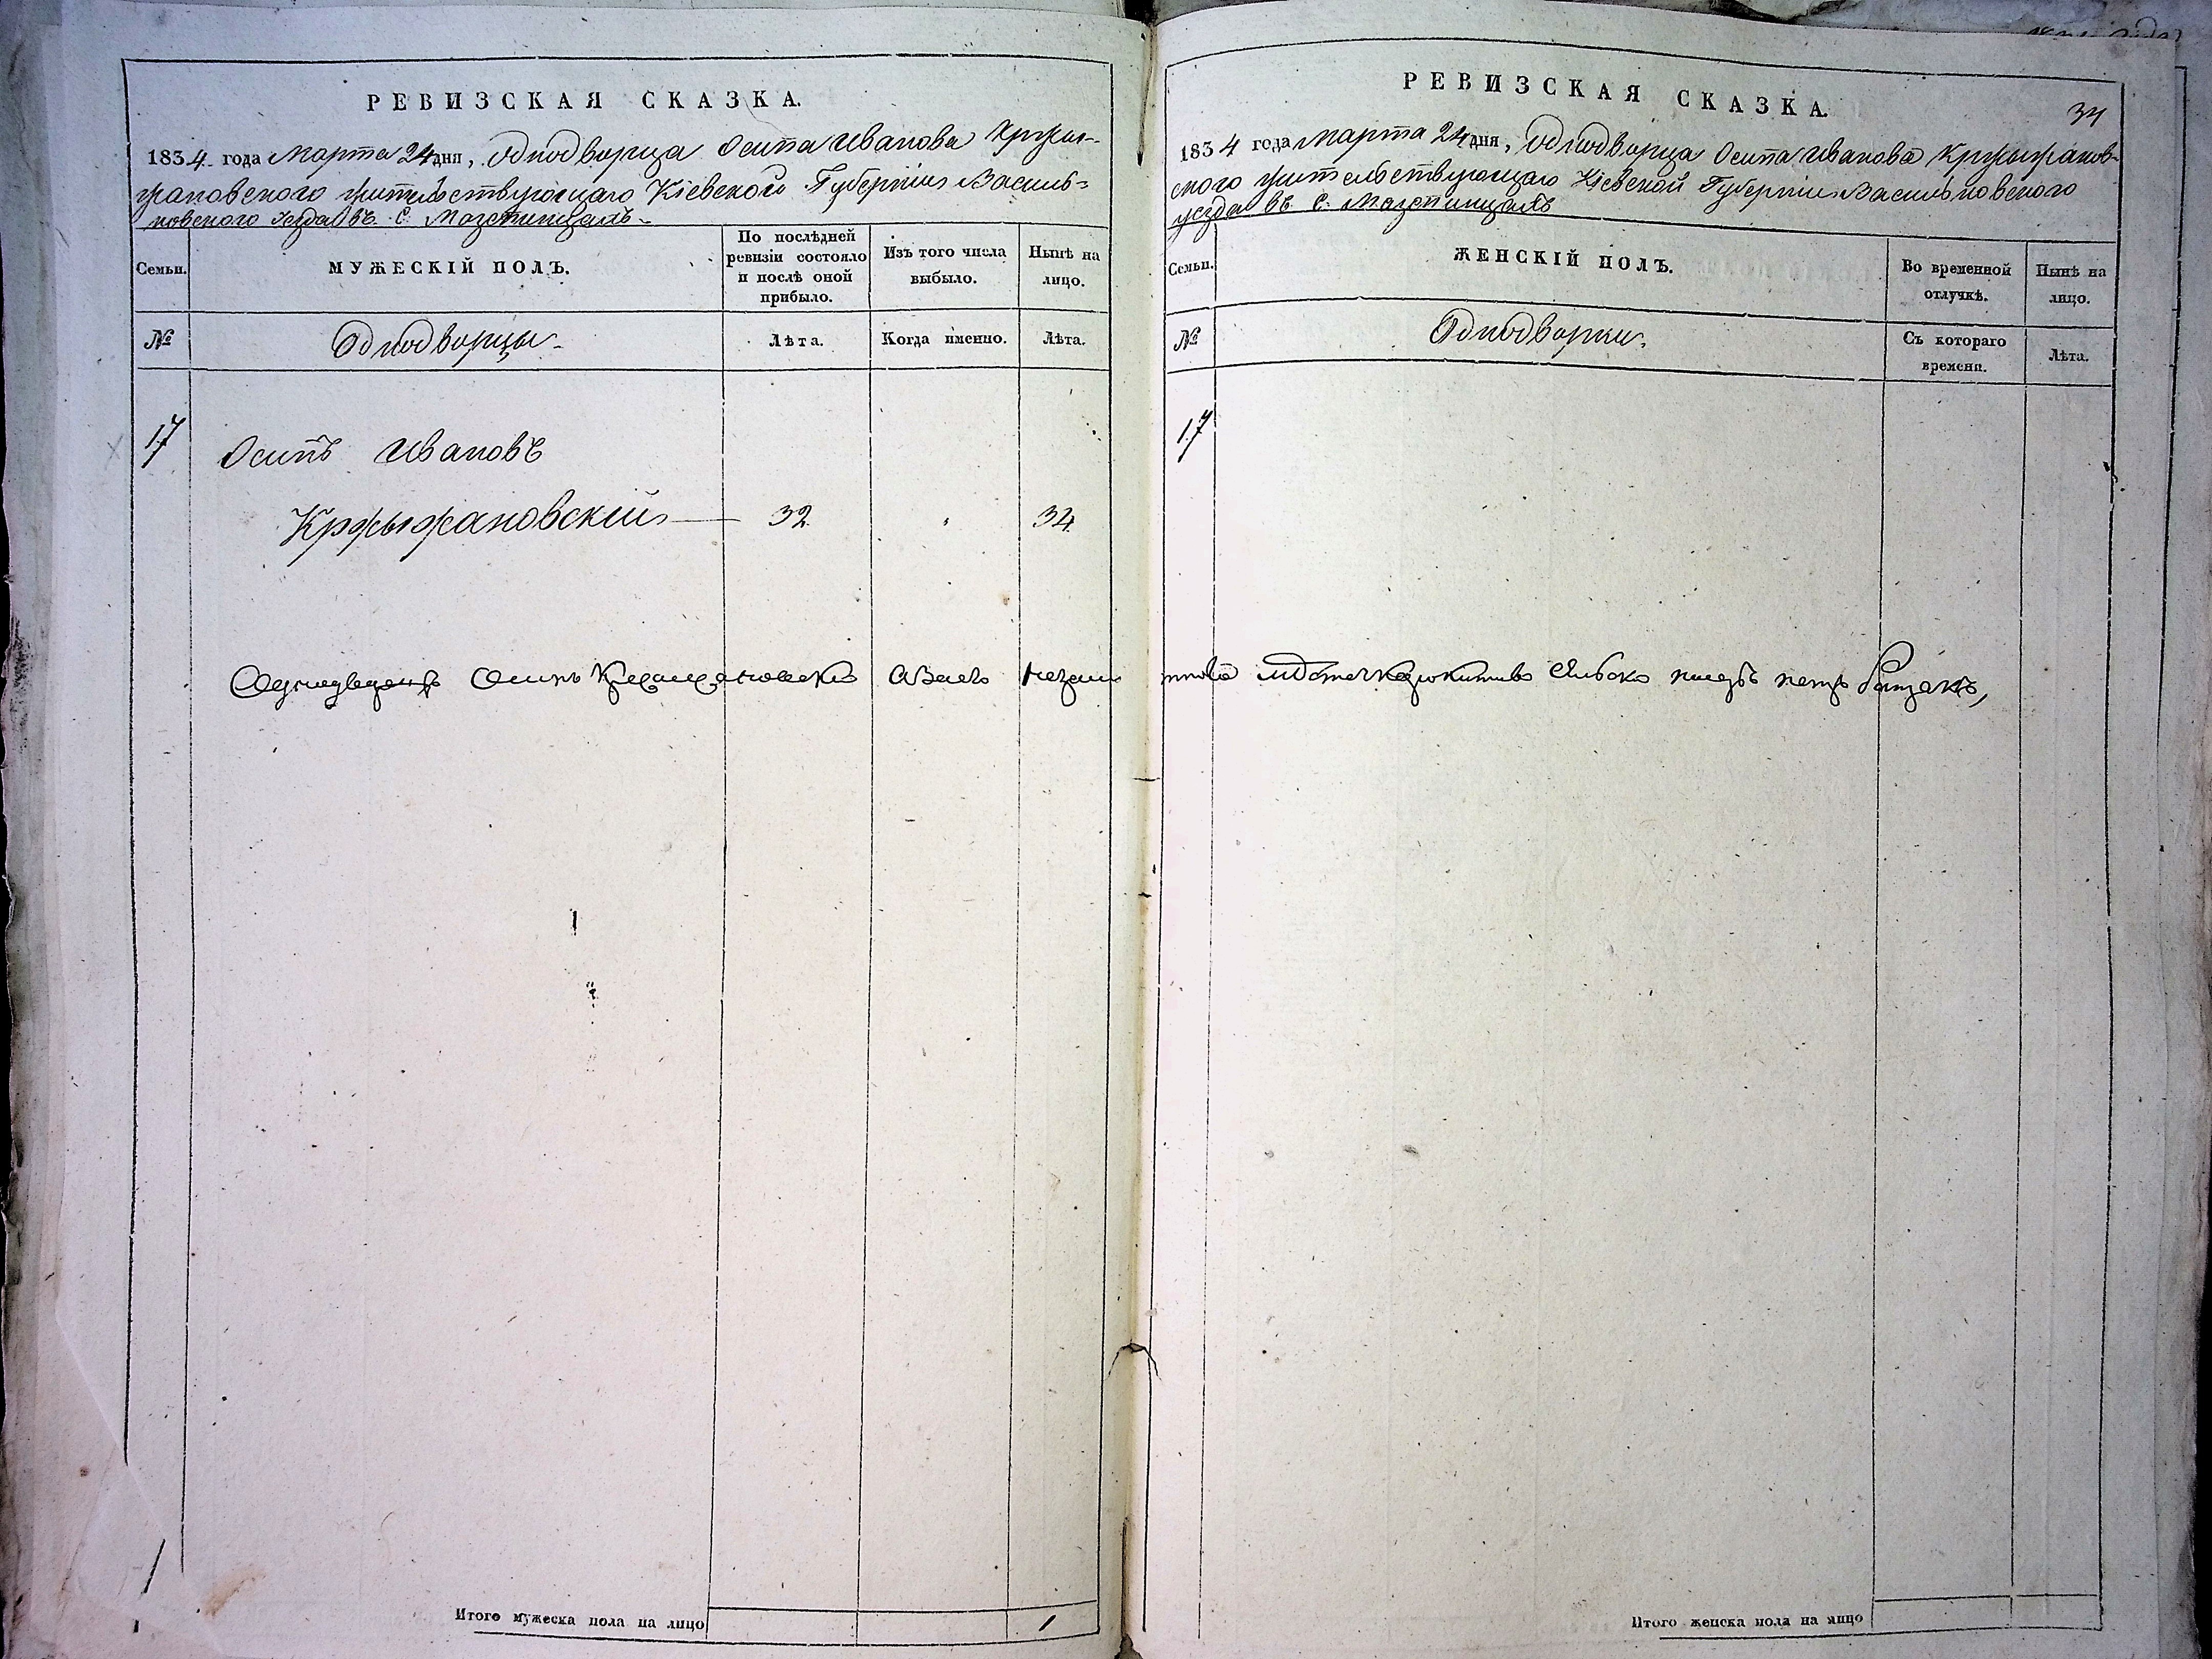 РЕВИЗСКАЯ СКАЗКА.
1834 года Марта 24 дня, Однодворца Осипа Иванова Кржы-
жановского жительствующаго Кіевской Губерніи Василь=
ковского уезда въ С.
Семьи.
МУЖЕСКІЙ ПОЛЪ.
По послѣдней ревизіи состояло и послѣ оной прибыло.
Изъ того числа выбыло.
Нынѣ на лицо.
№
Однодворцы
Лѣта.
Когда именно.
Лѣта.
17
Осипъ Ивановъ
Кржыжановскій 32. 34.
Однодворецъ Осипъ
Итого мужеска пола на лицо 1
РЕВИЗСКАЯ СКАЗКА.
34
1834 года Марта 24 дня, Однодворца Осипа Иванова Кржыжанов-
ского жительствующаго Кіевской Губерніи Васильковского
уезда въ С.
Семьи.
ЖЕНСКІЙ ПОЛЪ.
Во временной отлучкѣ.
Нынѣ на лицо.
№
Однодворки.
Съ котораго времени.
Лѣта.
17
Итого женска пола на лицо